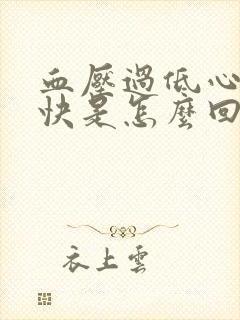 血壓過低心
快是怎麼回
衣上雲